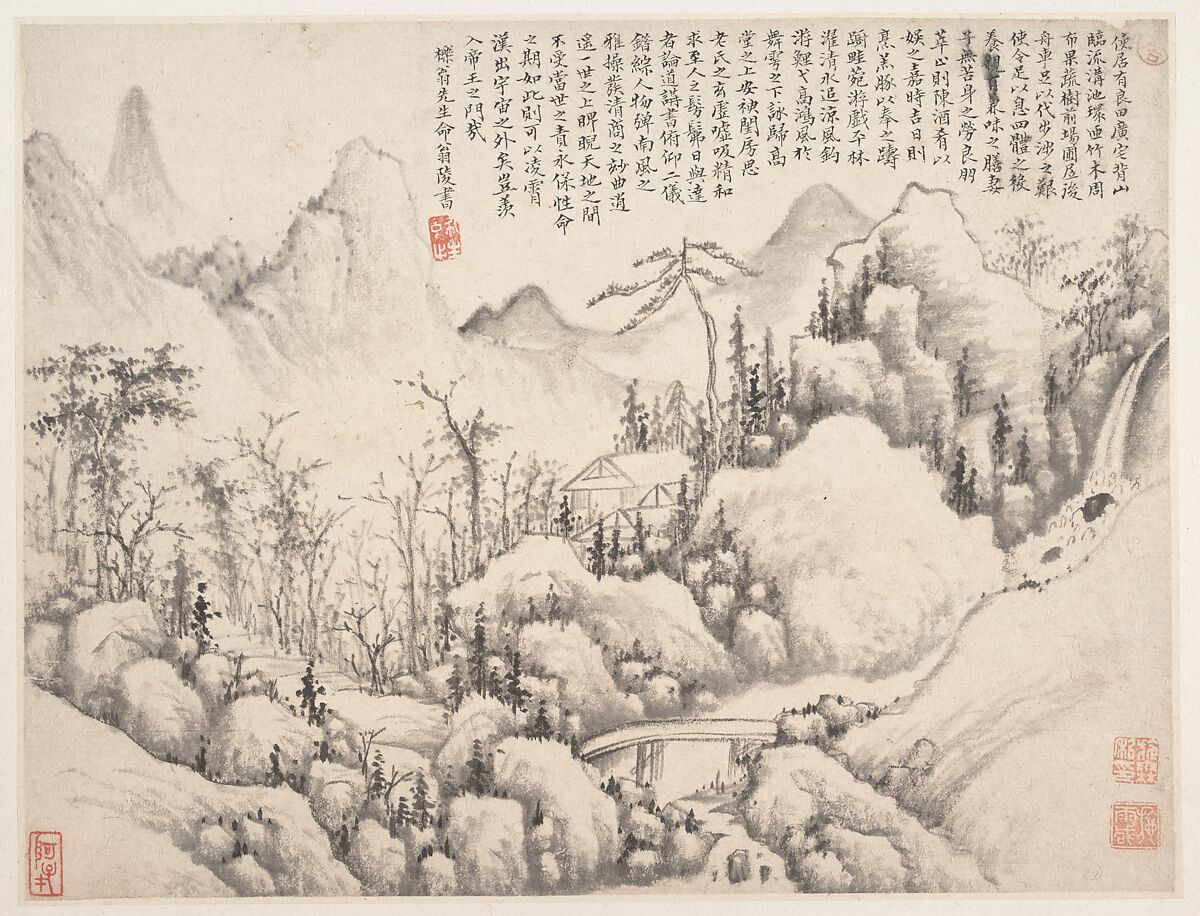 使居有良田廣宅背山
臨流溝池環迊竹木周
布果蔬樹前場圃居後
舟車足以代步涉之艱
使令足以息四體之役
養親有兼味之膳妻
子無苦身之勞良朋
萃止則陳酒肴以
娛之嘉時吉日則
烹羔豚以奉之躊
躕畦菀游戲平林
濯清水追涼風釣
游鯉弋高鴻風於
舞雩之下詠歸高
堂之上安神閨房思
老氏之玄虛噓吸精和
求至人之髣髴日與達
者論道講書俯仰二儀
錯綜人物彈南風之
雅操發清商之妙曲逍
遙一世之上睥睨天地之間
不受當世之責永保性命
之期如此則可以凌霄
漢出宇宙之外矣豈羨
入帝王之門哉
櫟翁先生命翁陵書